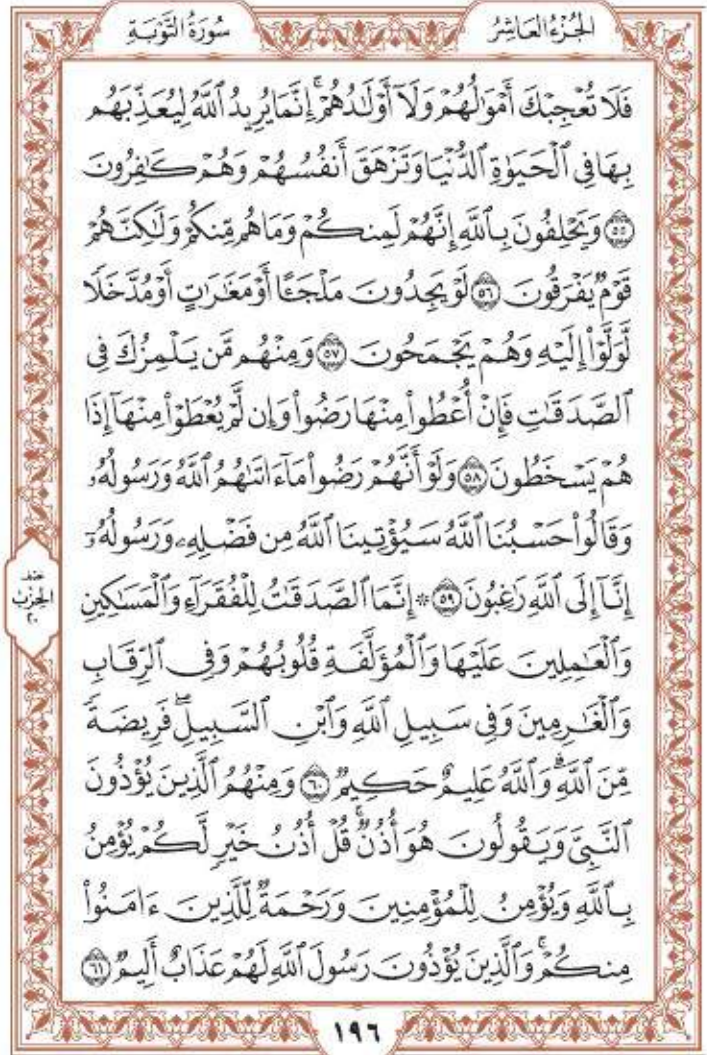 الجُزْءُ العَاشِرُ
سُورَةُ التَّوْبَةِ
فَلَا تُعْجِبْكَ أَمْوَٰلُهُمْ وَلَآ أَوْلَٰدُهُمْ ۚ إِنَّمَا يُرِيدُ ٱللَّهُ لِيُعَذِّبَهُم
بِهَا فِى ٱلْحَيَوٰةِ ٱلدُّنْيَا وَتَزْهَقَ أَنفُسُهُمْ وَهُمْ كَٰفِرُونَ
٥٥ وَيَحْلِفُونَ بِٱللَّهِ إِنَّهُمْ لَمِنكُمْ وَمَا هُم مِّنكُمْ وَلَٰكِنَّهُمْ
قَوْمٌ يَفْرَقُونَ ٥٦ لَوْ يَجِدُونَ مَلْجَـًٔا أَوْ مَغَٰرَٰتٍ أَوْ مُدَّخَلًا
لَّوَلَّوْا۟ إِلَيْهِ وَهُمْ يَجْمَحُونَ ٥٧ وَمِنْهُم مَّن يَلْمِزُكَ فِى
ٱلصَّدَقَٰتِ فَإِنْ أُعْطُوا۟ مِنْهَا رَضُوا۟ وَإِن لَّمْ يُعْطَوْا۟ مِنْهَآ إِذَا
هُمْ يَسْخَطُونَ ٥٨ وَلَوْ أَنَّهُمْ رَضُوا۟ مَآ ءَاتَىٰهُمُ ٱللَّهُ وَرَسُولُهُۥ
وَقَالُوا۟ حَسْبُنَا ٱللَّهُ سَيُؤْتِينَا ٱللَّهُ مِن فَضْلِهِۦ وَرَسُولُهُۥٓ
إِنَّآ إِلَى ٱللَّهِ رَٰغِبُونَ ٥٩ ۞ إِنَّمَا ٱلصَّدَقَٰتُ لِلْفُقَرَآءِ وَٱلْمَسَٰكِينِ
وَٱلْعَٰمِلِينَ عَلَيْهَا وَٱلْمُؤَلَّفَةِ قُلُوبُهُمْ وَفِى ٱلرِّقَابِ
وَٱلْغَٰرِمِينَ وَفِى سَبِيلِ ٱللَّهِ وَٱبْنِ ٱلسَّبِيلِ ۖ فَرِيضَةً
مِّنَ ٱللَّهِ ۗ وَٱللَّهُ عَلِيمٌ حَكِيمٌ ٦٠ وَمِنْهُمُ ٱلَّذِينَ يُؤْذُونَ
ٱلنَّبِىَّ وَيَقُولُونَ هُوَ أُذُنٌ ۚ قُلْ أُذُنُ خَيْرٍ لَّكُمْ يُؤْمِنُ
بِٱللَّهِ وَيُؤْمِنُ لِلْمُؤْمِنِينَ وَرَحْمَةٌ لِّلَّذِينَ ءَامَنُوا۟
مِنكُمْ ۚ وَٱلَّذِينَ يُؤْذُونَ رَسُولَ ٱللَّهِ لَهُمْ عَذَابٌ أَلِيمٌ ٦١
الحِزْب
٢٠
١٩٦